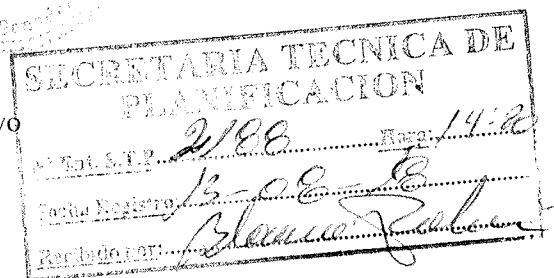 SECRETARIA TECNICA DE
PLANIFICACION
vo
Ent. S.T.P. 2188 Hora: 14:20
Fecha Registro: 15-08-18
Recibido por: Blanca